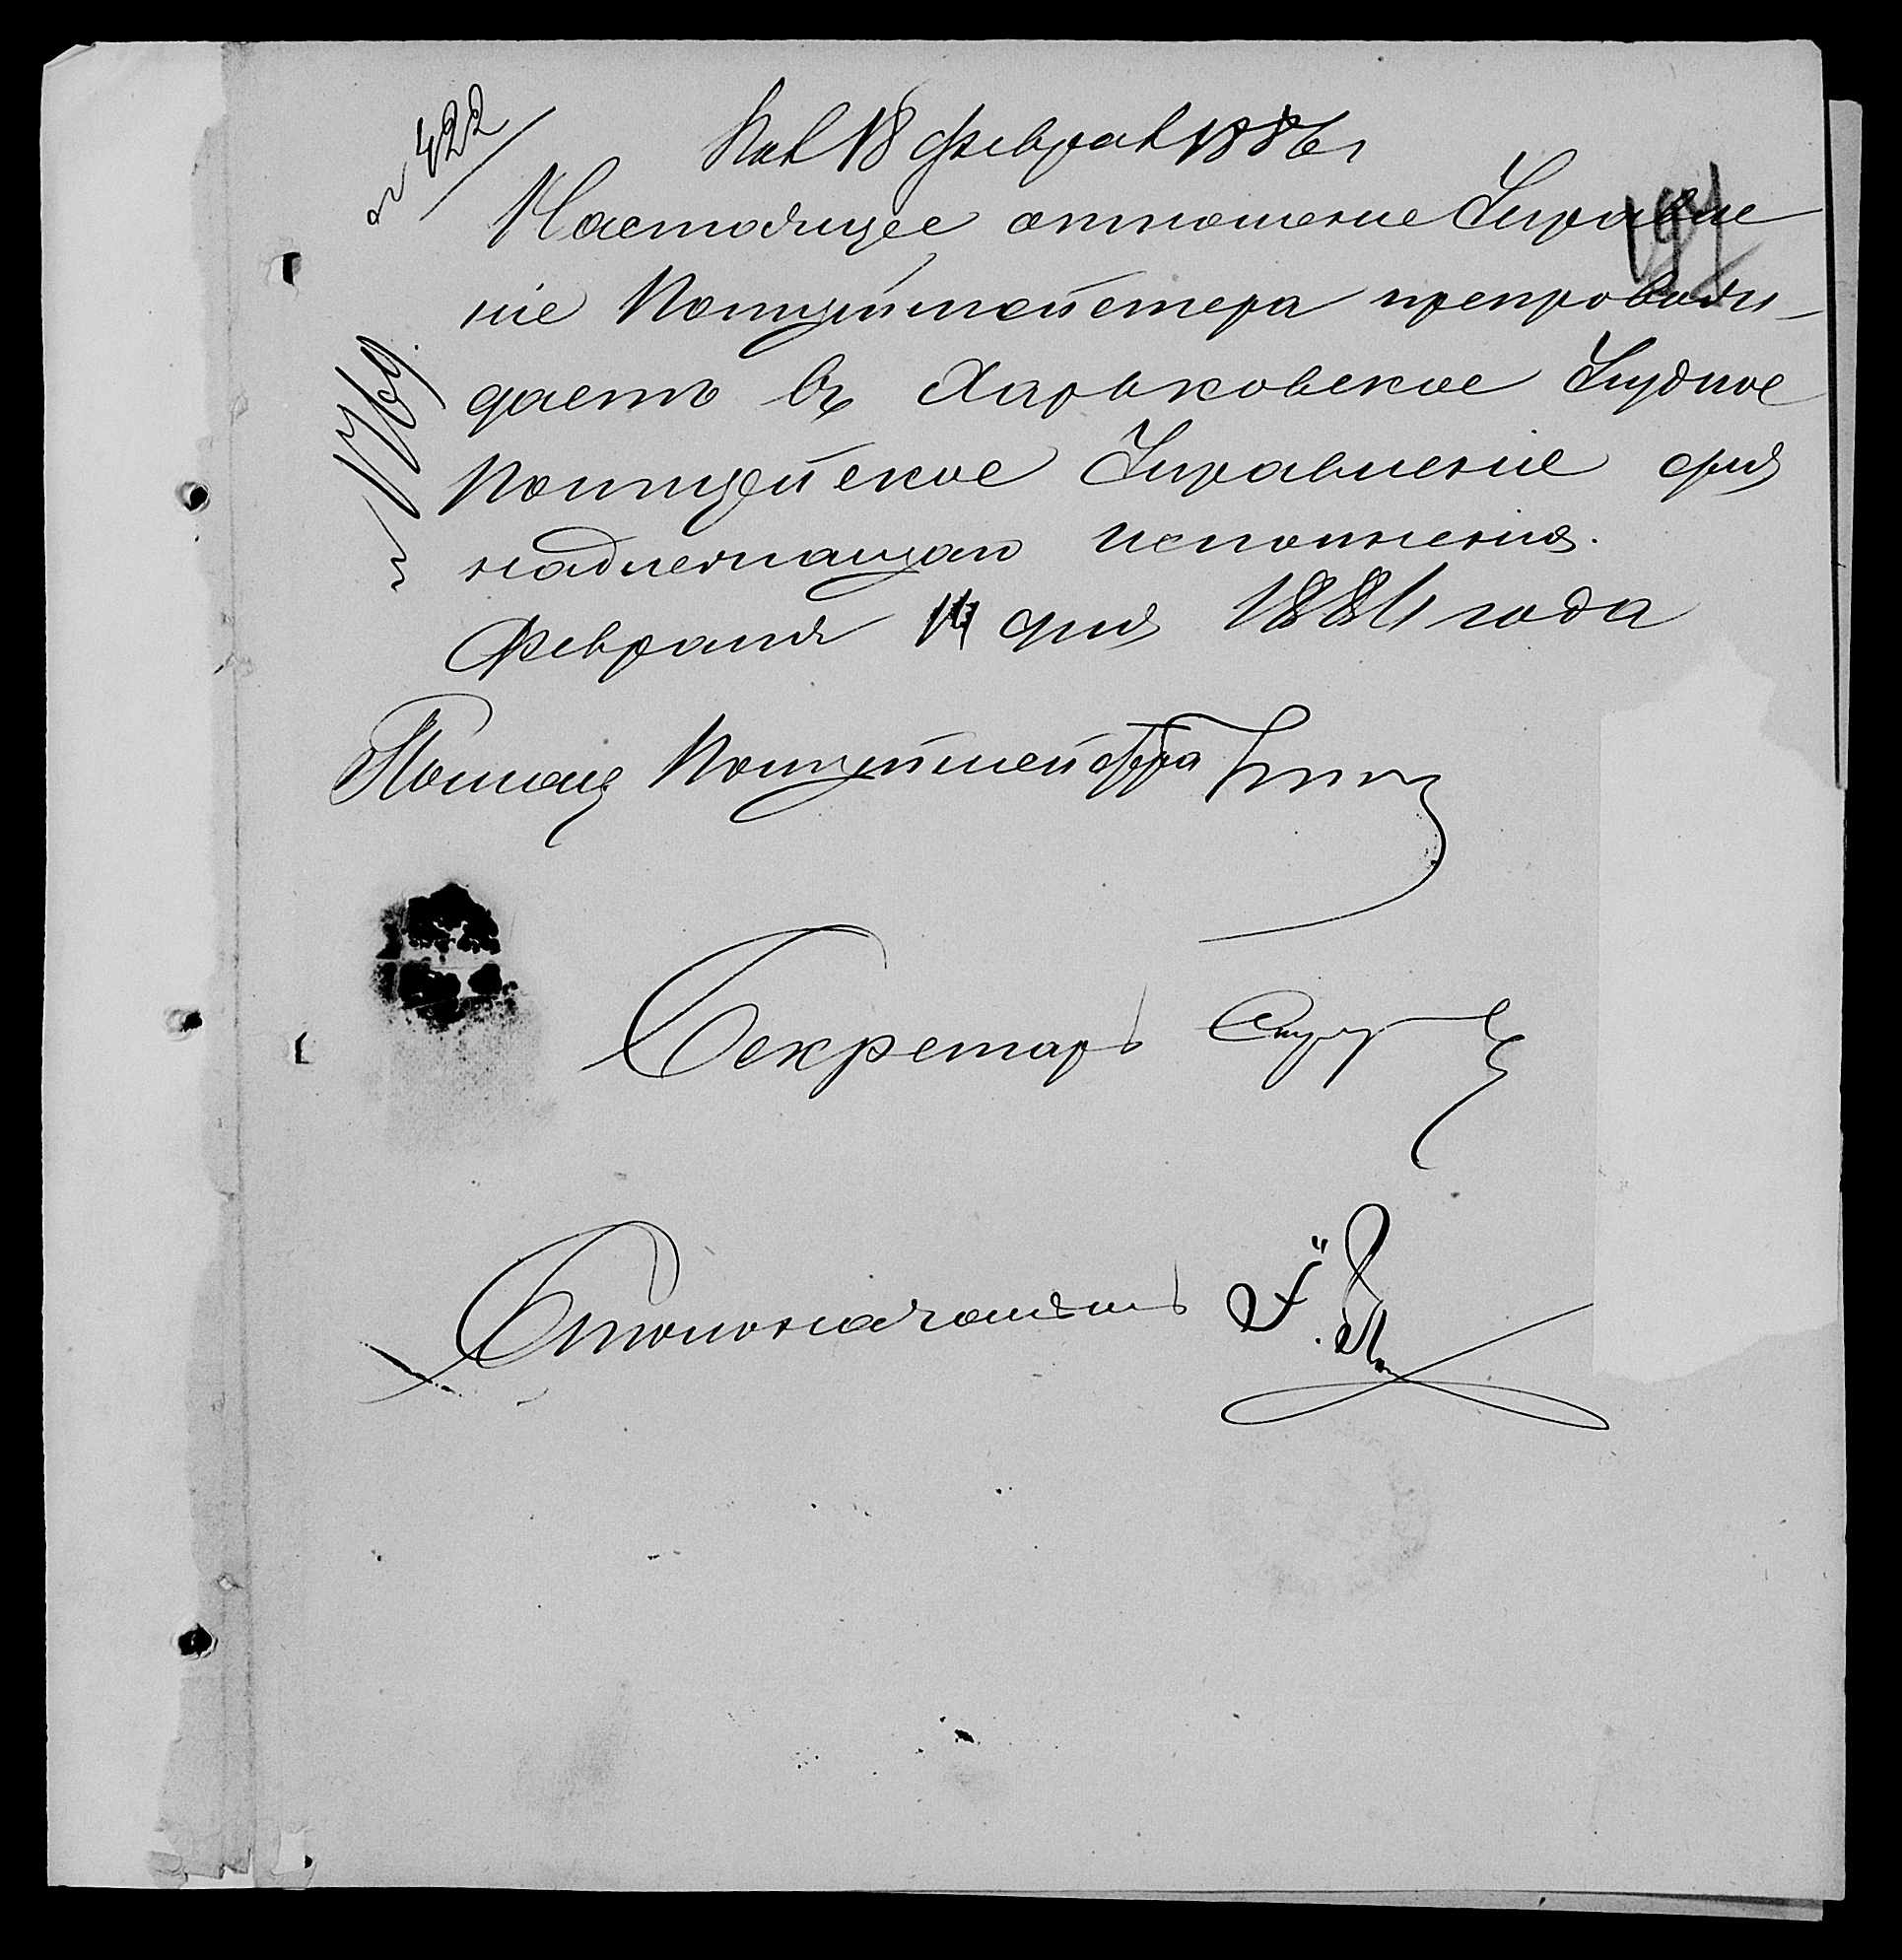 № 422
Пол 18 Феврал 1886 г
197
Настоящее отношение Управле
ніе Полиціймейстера препровож
даетъ въ Харьковское Уѣздное
№ 1769.
Полицейское Управленіе для
надлежащаго исполненія.
Февраля дня 1886 года
Помощ Полиціймейстера
Секретарь
Столоначальникъ